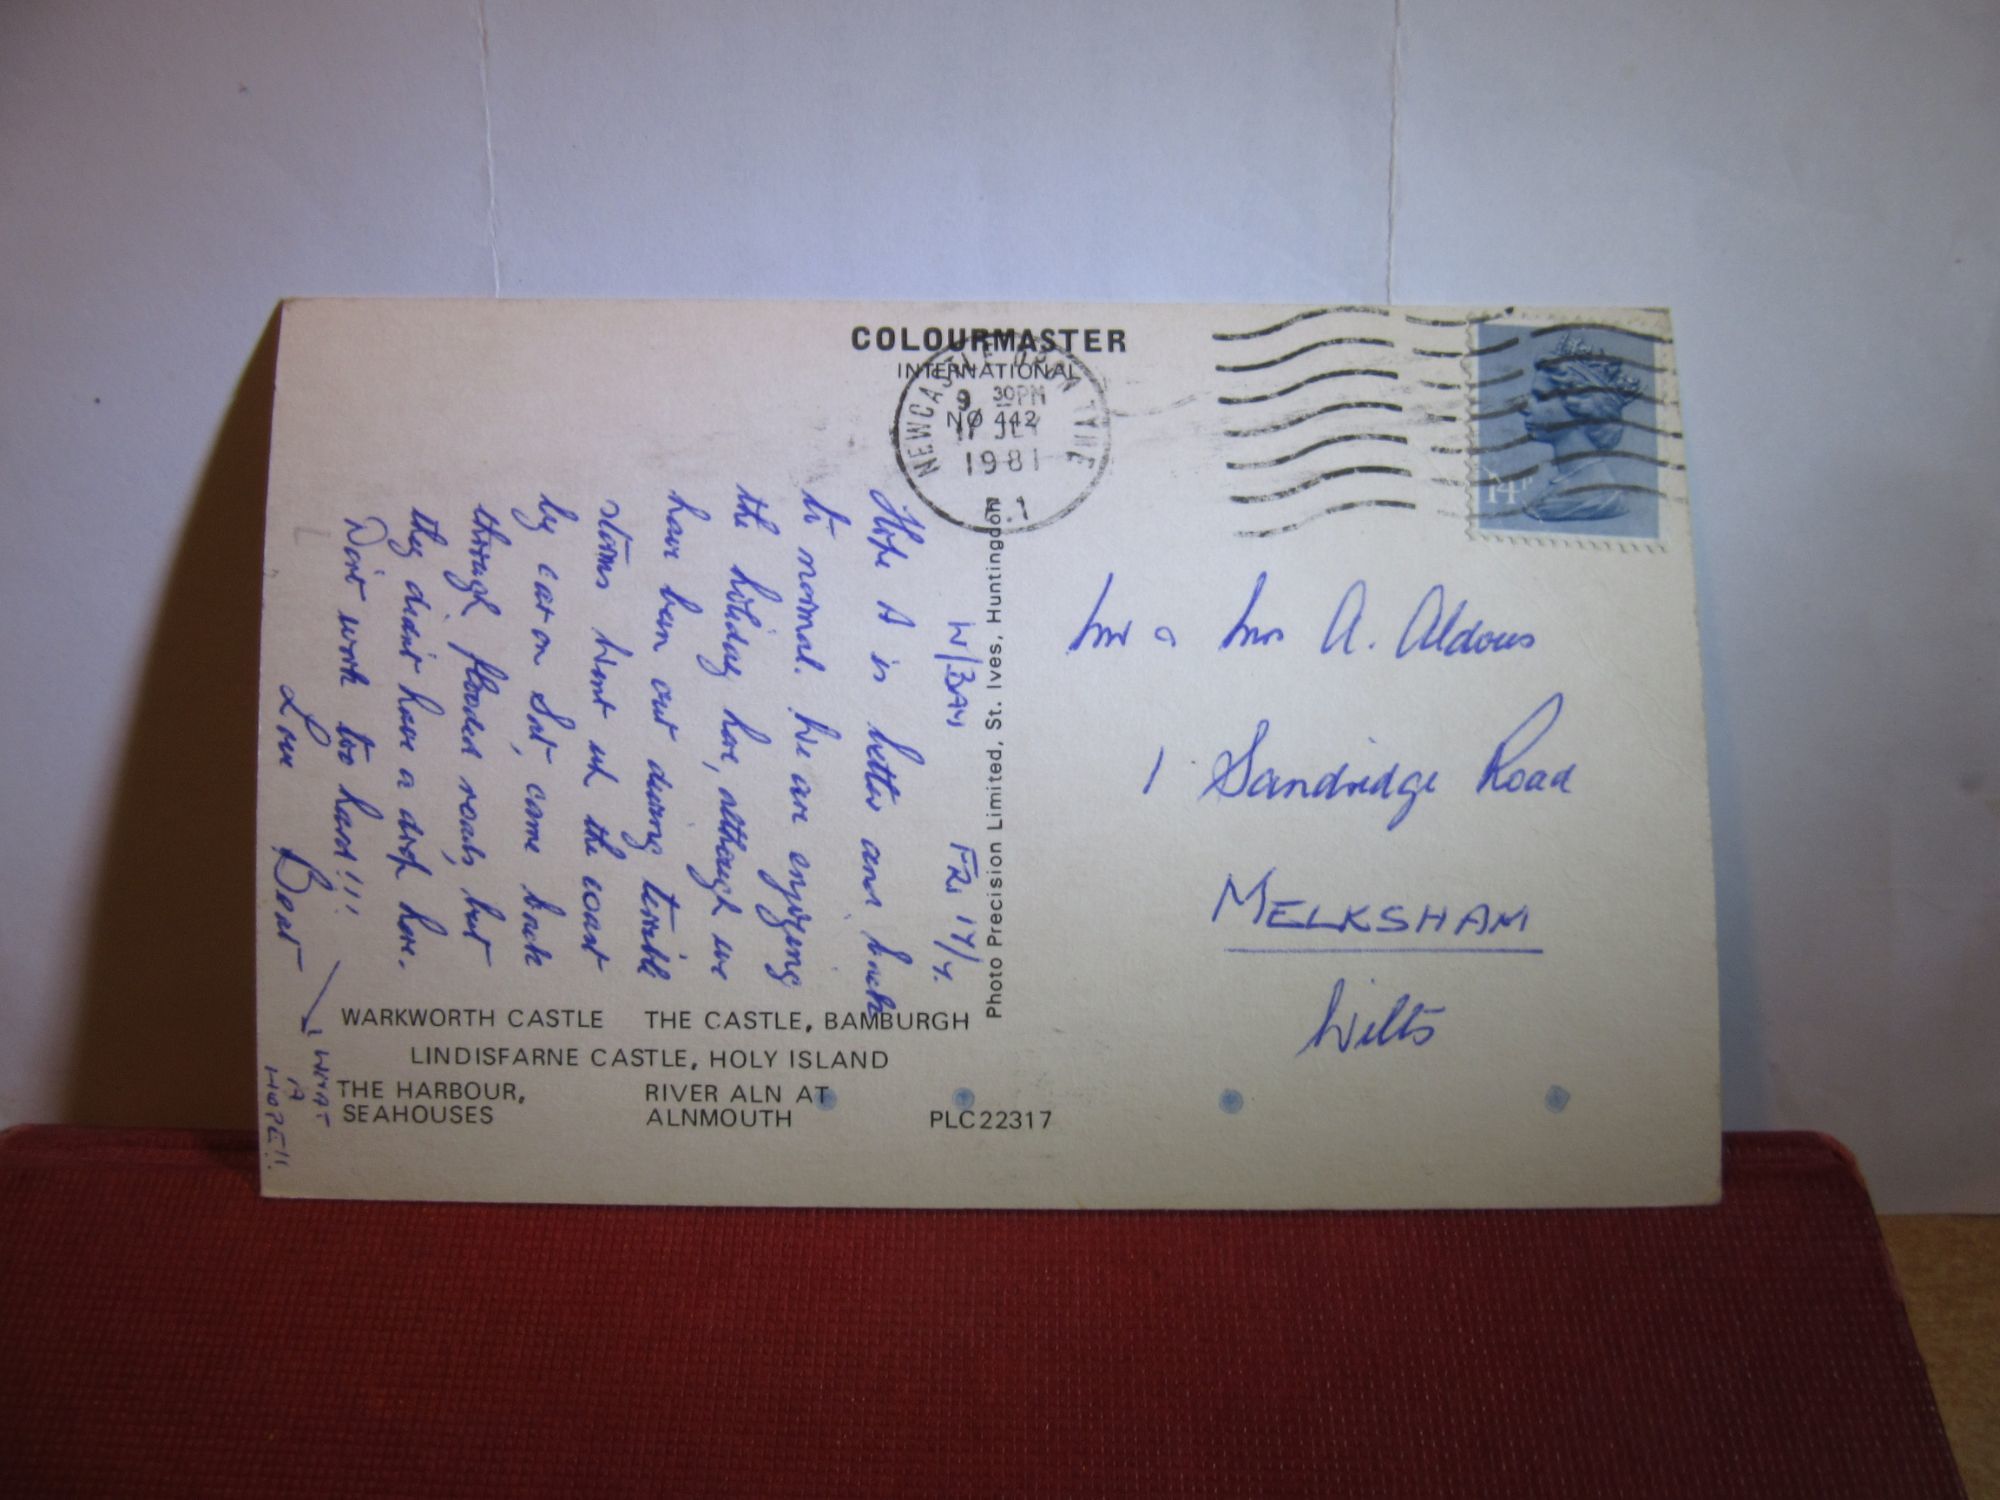 COLOURMASTER
INTERNATIONAL
NEWCASTLE UPON TYNE
9 30PM
NO 442
1981
14P
W/BAY FRI 17/7.
Hope A is better and back
to normal. We are enjoying
the holiday here, although we
have been out during terrible
storms. Went up the coast
by car on Sat, came back
through flooded roads, but
they didn't have a drop here.
Don't work too hard!!!
Love
WHAT
A
HOPE!!
Photo Precision Limited, St. Ives, Huntingdon
Mr & Mrs A. Aldous
1 Sandridge Road
MELKSHAM
Wilts
WARKWORTH CASTLE THE CASTLE, BAMBURGH
LINDISFARNE CASTLE, HOLY ISLAND
THE HARBOUR, RIVER ALN AT
SEAHOUSES ALNMOUTH PLC22317